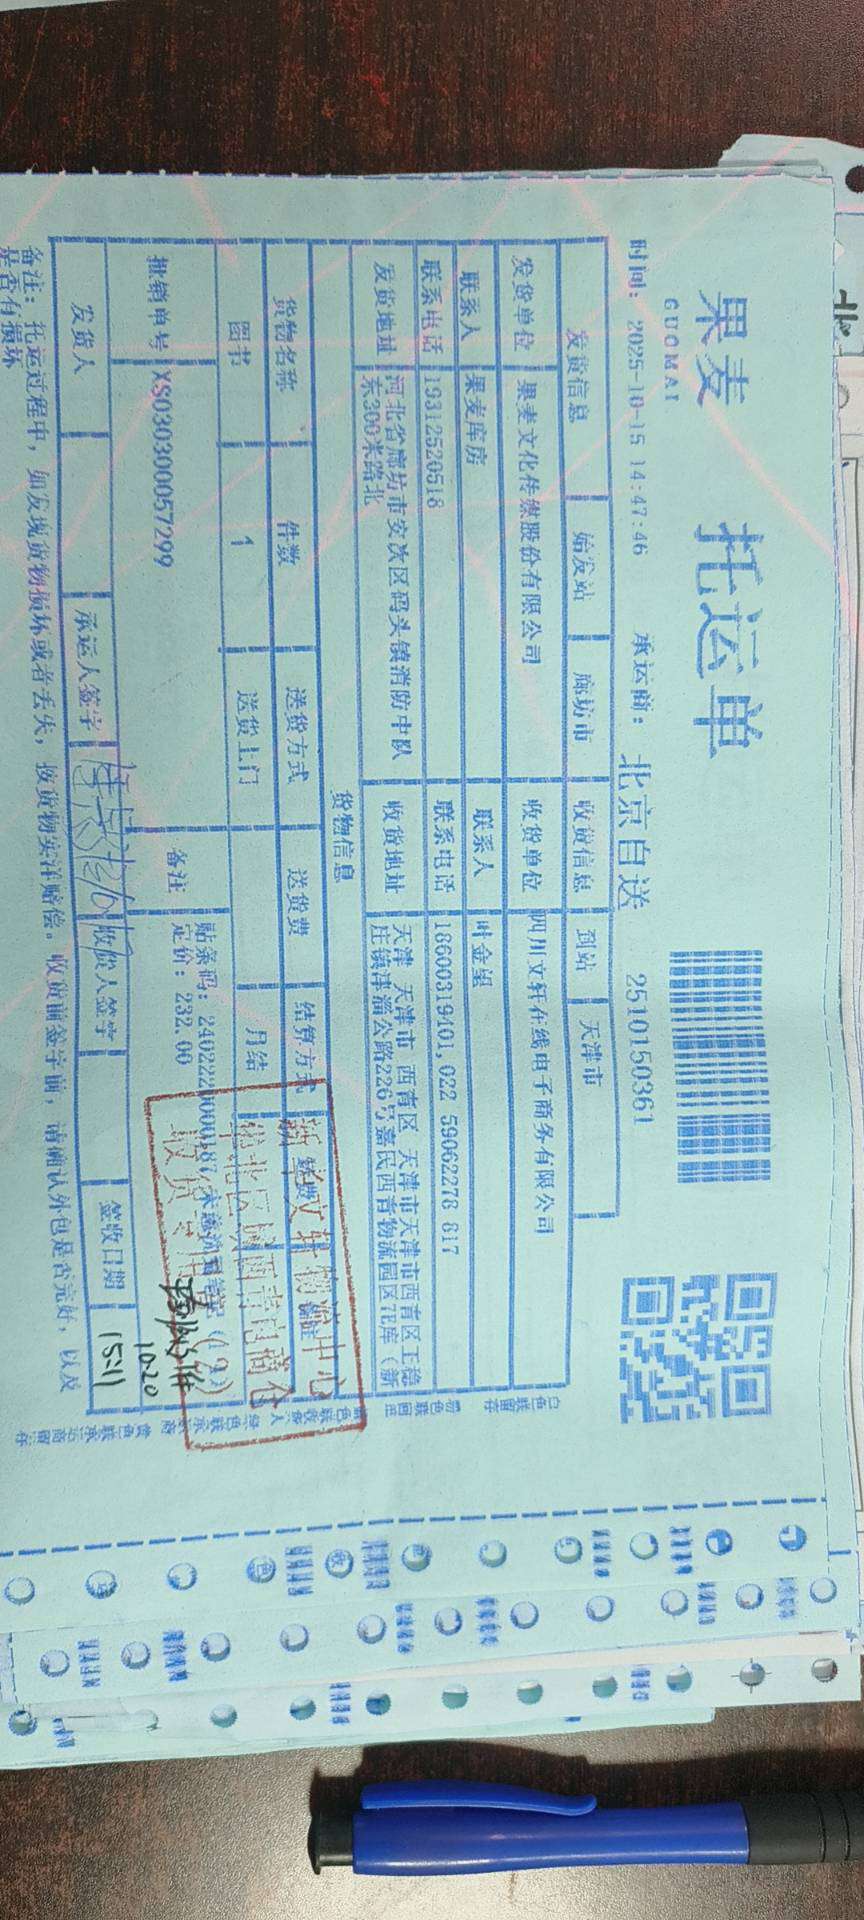 果麦 托运单
GUOMAI
时间：2025-10-15 14:47:46 承运商：北京自送 2510150361
发货信息 始发站 廊坊市 收货信息 到站 天津市
发货单位 果麦文化传媒股份有限公司 收货单位 四川文轩在线电子商务有限公司
联系人 果麦库房 联系人 叶金望
联系电话 19312520518 联系电话 18600319401,022 59062278 817
发货地址 河北省廊坊市安次区码头镇消防中队 收货地址 天津 天津市 西青区 天津市天津市西青区王稳
东300米路北 庄镇津淄公路226号嘉民西青物流园区7E库（新
货物信息
货物名称 件数 送货方式 送货费 结算方式
图书 1 送货上门 月结
批销单号 XS030300057299 备注 贴条码：
定价：232.00
新华文轩物流中心
华北区域西青电商仓
收货专用
10.20
发货人 承运人签字 收货人签字 签收日期 15:11
备注：托运过程中，如发现货物损坏或者丢失，按货物实洋赔偿。收货前签字前，请确认外包是否完好，以及
是否有损坏